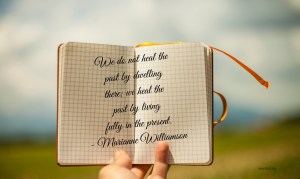 We do not heal the
past by dwelling
there; we heal the
past by living
fully in the present.
- Marianne Williamson